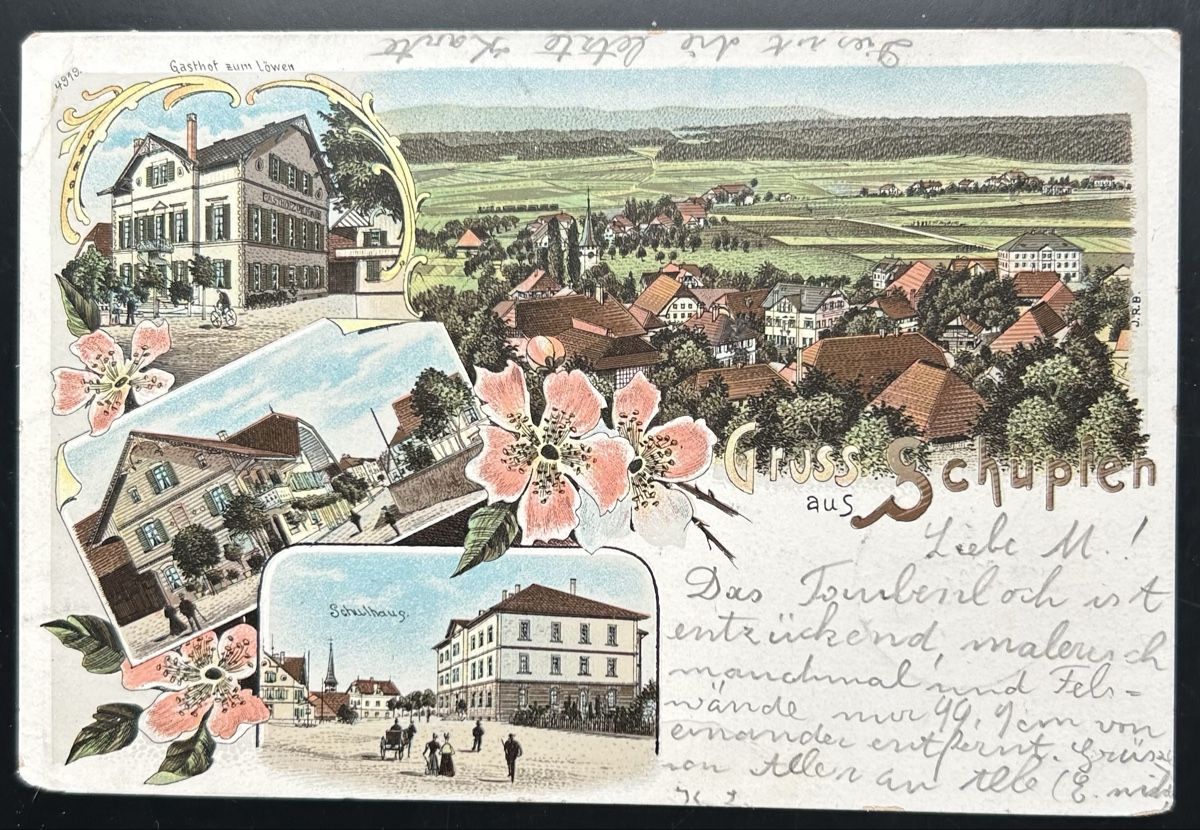 Dies ist die letzte Karte
4919.
Gasthof zum Löwen
GASTHOF ZUM LÖWEN
J.R.B.
Gruss
aus Schüpfen
Schulhaus.
Liebe M.!
Das Tombenloch ist
entzückend, malerisch
manchmal sind Fels-
wände nur 99,9 cm von
einander entfernt. Grüsse
von Allen an Alle (E. nicht